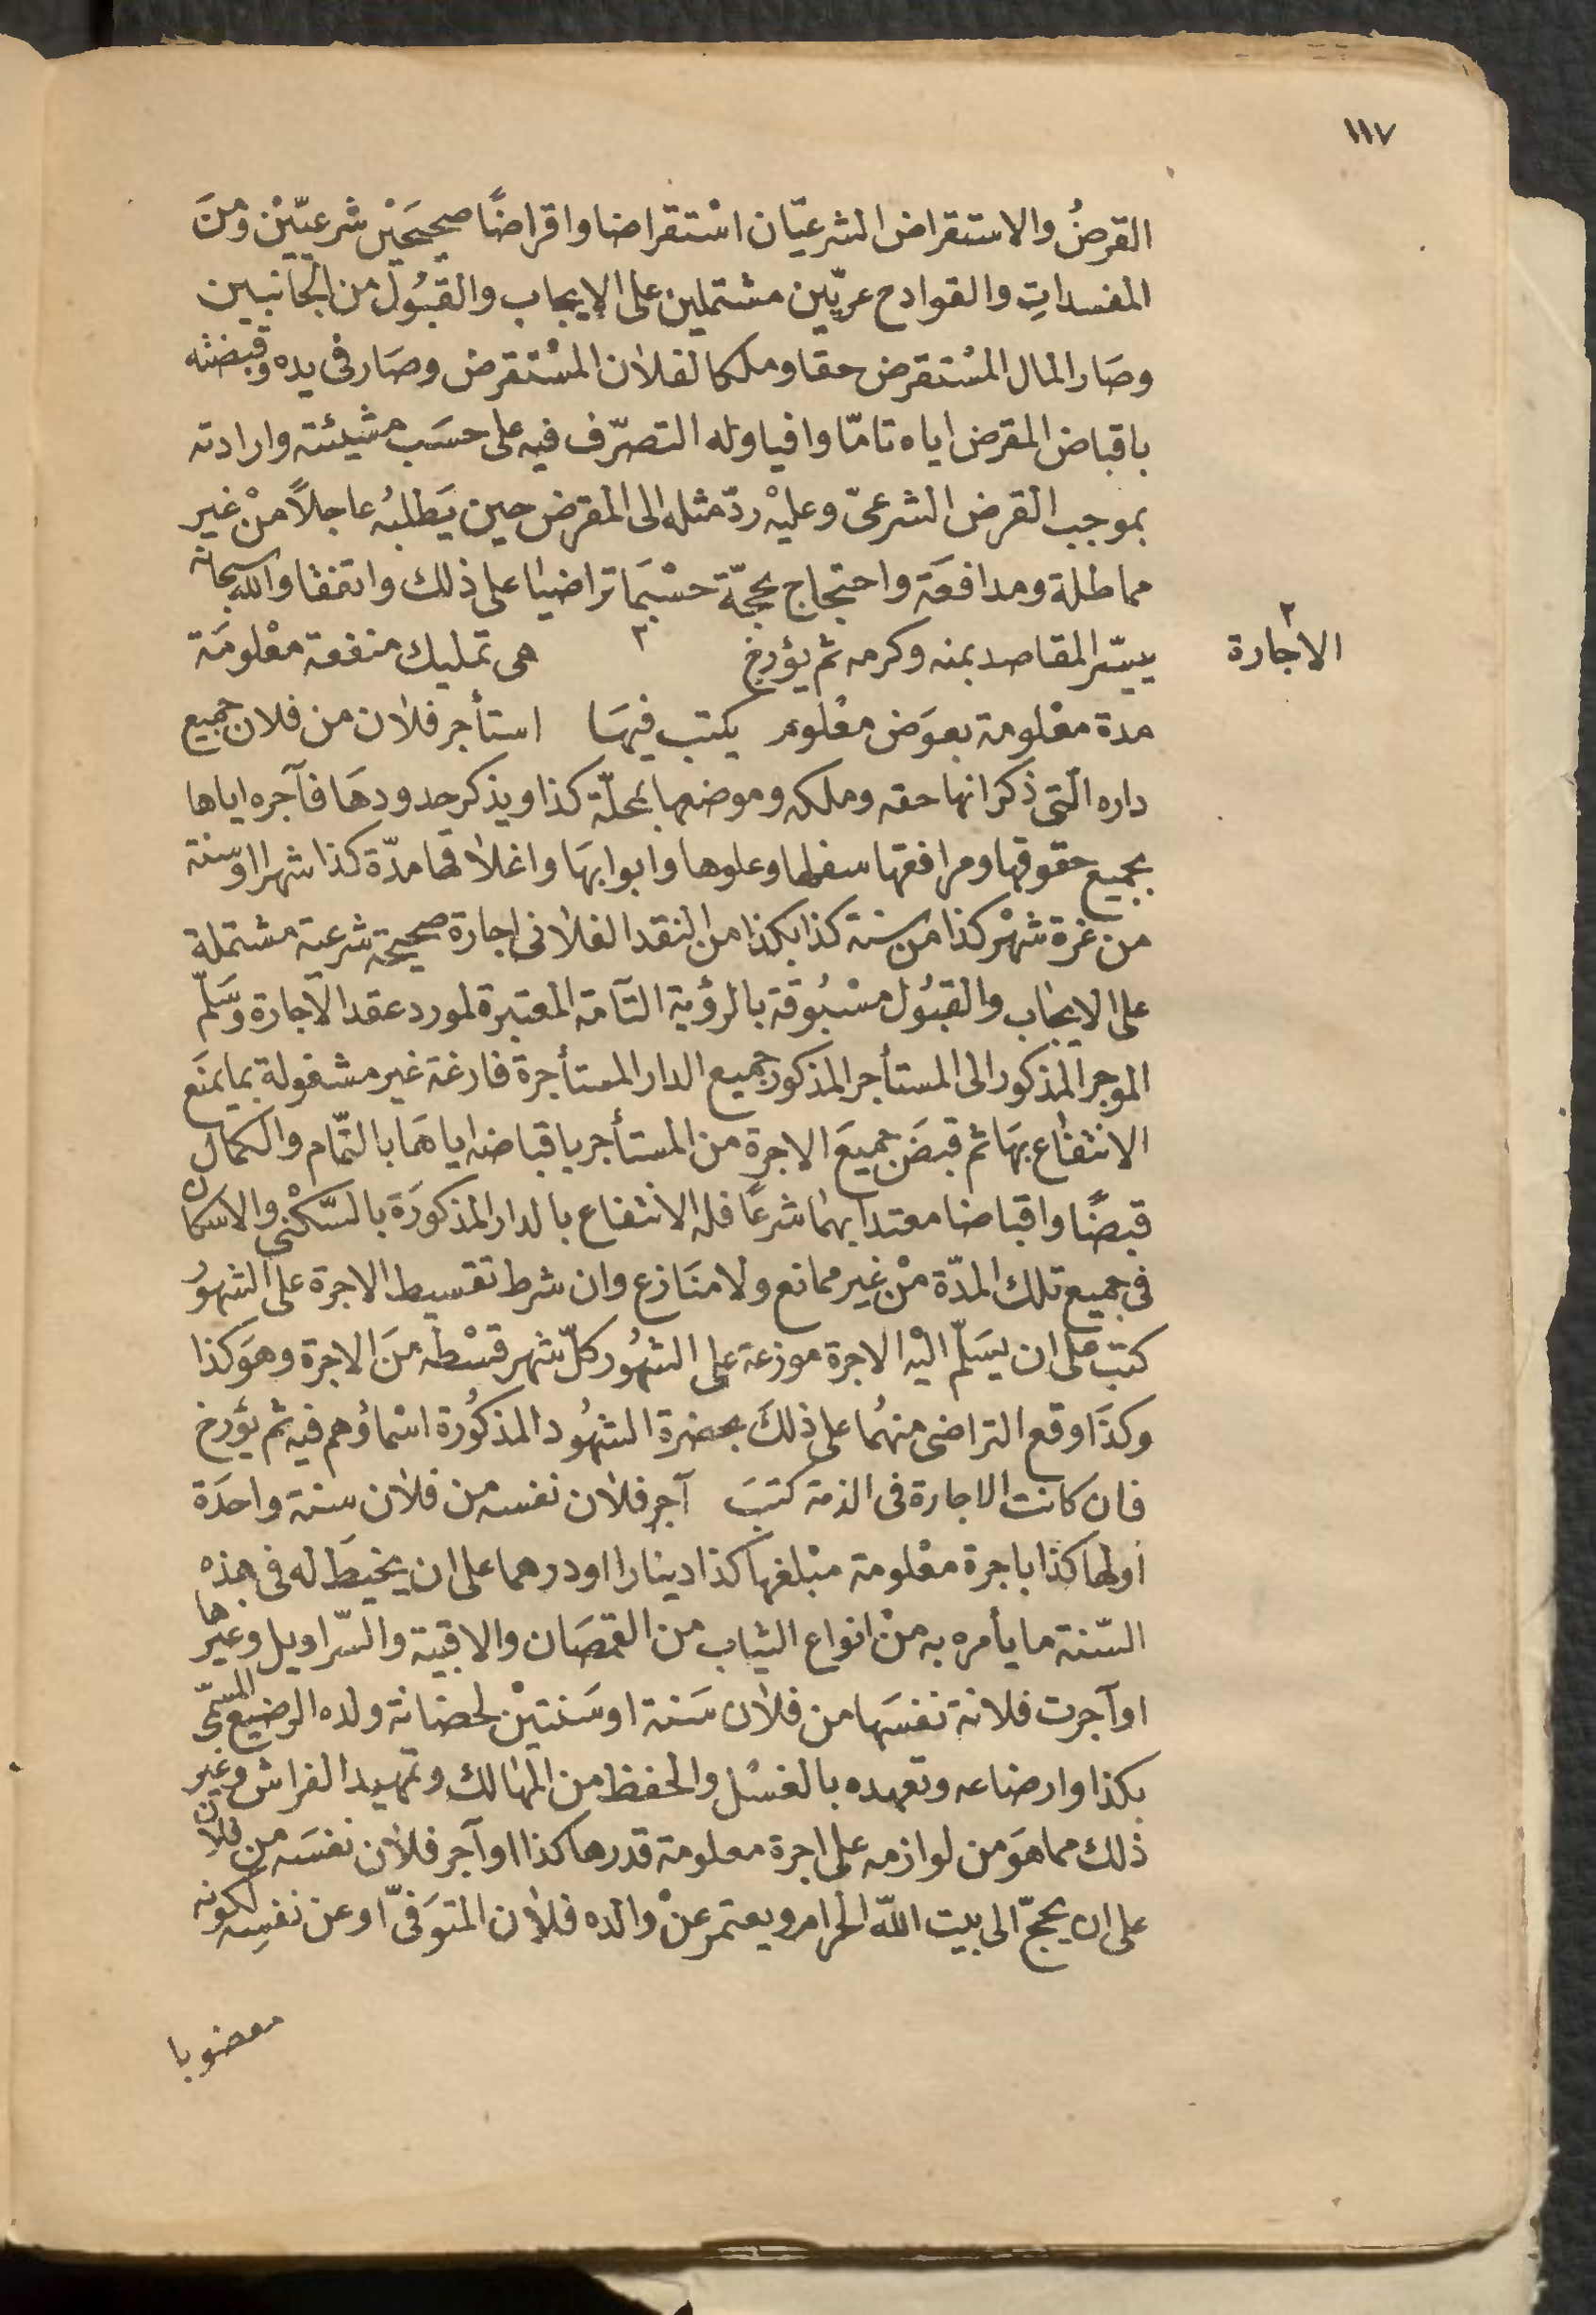 ١١٧
القرضُ والاستقراض الشرعيّان اسْتقراضا واقراضًا صحيحَيْن شرعيّيْن ومنَ
المفسداتِ والقوادح عريّين مشتملين على الايجاب والقبُول من الجانبين
وصَار المال المُستقرض حقا وملكا لفلان المسْتقرض وصَار فى يده وقبضته
باقباض المقرض اياه تامّا وافيا وله التصرّف فيه على حسَب مشيئته وارادته
بموجب القرض الشرعىّ وعليْه ردّ مثله الى المقرض حين يَطلبُه عاجلاً منْ غير
مماطلة ومدافعَة واحتجاج بحجّة حسْبَما تراضيا على ذلك واتفقا والله سبحانه
ييسّر المقاصد بمنه وكرمه ثم يؤرخ ٢ هى تمليك منفعة معْلومَة
٢ الاجارة
مدة معْلومة بعوَض معْلوم يكتب فيهَا استأجر فلان من فلان جميع
داره التى ذكر انها حقه وملكه وموضعها بمحلّة كذا ويذكر حدودهَا فآجره اياها
بجميع حقوقها ومرافقها سفلها وعلوها وابوابهَا واغلاقها مدّة كذا شهرا اوسنة
من غرة شهْر كذا من سنة كذا بكذا من النقد الفلانى اجارة صحيحة شرعية مشتملة
على الايجاب والقبُول مسْبُوقة بالرؤية التآمة المعتبرة لمورد عقد الاجارة وسَلّم
الموجر المذكور الى المستأجر المذكور جميع الدار المستأجرة فارغة غير مشغولة بما يمنَع
الانتفاع بهَا ثم قبضَ جميعَ الاجرة من المستأجر باقباضه اياهَا بالتّمام والكمال
قبضًا واقباضا معتدا بهما شرعًا فله الانتفاع بالدار المذكورَة بالسّكنْى والاسكان
فى جميع تلك المدّة منْ غير ممانع ولا منَازع وان شرط تقسيط الاجرة على الشهوُر
كتبَ على ان يسَلّم اليْه الاجرة موزعة على الشهُور كلّ شهر قسْطه منَ الاجرة وهوَ كذا
وكذَا وقع التراضى منهُما على ذلكَ بحضرة الشهُود المذكُورة اسْماؤهم فيه ثم يؤرخ
فان كانت الاجارة فى الذمة كتبَ آجر فلان نفسه من فلان سنة واحدَة
اولها كذا باجرة معْلومة مبْلغها كذا دينارا اودرهما على ان يخيطَ له فى هذه
السّنة ما يأمره به منْ انواع الثياب من القمصَان والاقبية والسّراويل وغيْرها
اوآجرت فلانة نفسَها من فلان سَنة اوسَنتيْن لحضانة ولده الرضيع المسمّى
بكذا وارضاعه وتعهده بالغسْل والحفظ من المهَالك وتمهيد الفراش وغير
ذلك مما هوَ من لوازمه على اجرة معلومة قدرها كذا اوآجر فلان نفسَه من فلان
على ان يحجّ الى بيت اللّه الحرام ويعتمر عنْ والده فلان المتوَفىّ اوعن نفسِه لكونه
معضوبا